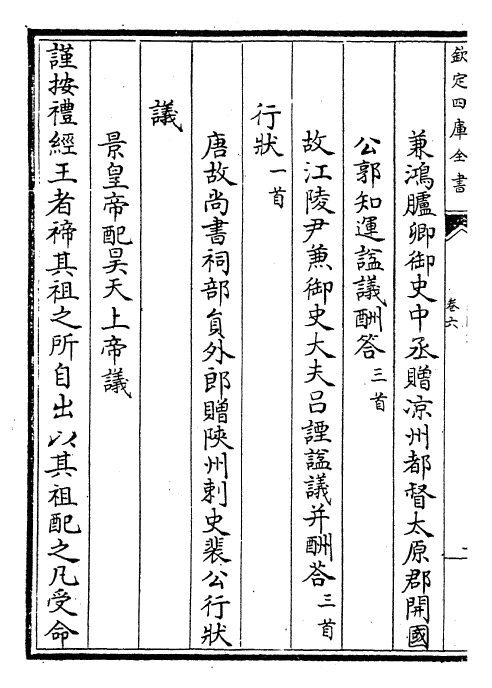 欽定四庫全書
卷六
兼鴻臚卿御史中丞贈凉州都督太原郡開國
公郭知運諡議酬答三首
故江陵尹兼御史大夫吕諲諡議并酬答三首
行狀一首
唐故尚書祠部貟外郎贈陜州刺史裴公行狀
議
景皇帝配昊天上帝議
謹按禮經王者禘其祖之所自出以其祖配之凡受命